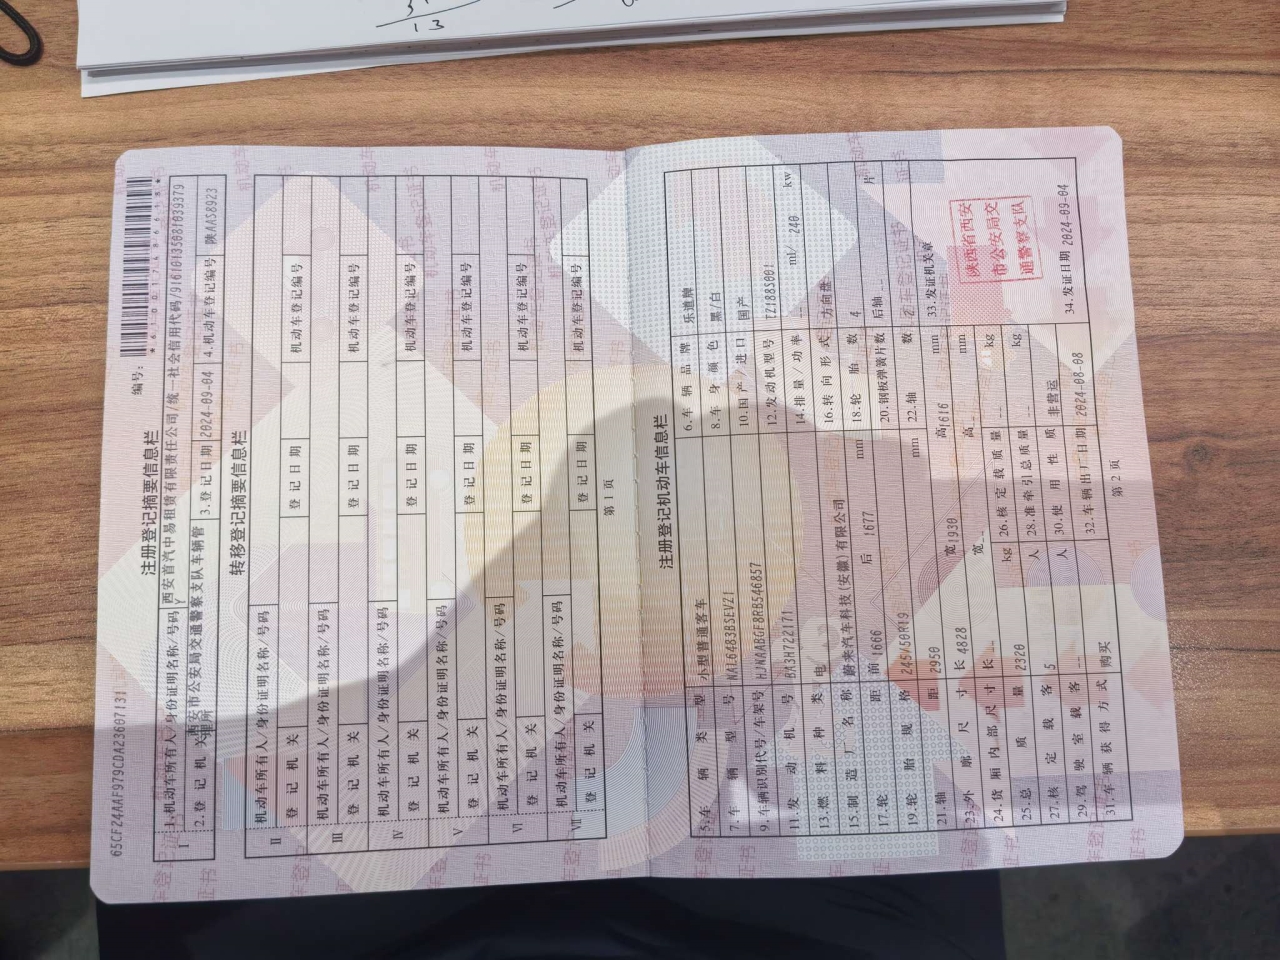 13
65CF24AAF979CDA23607131
编号：
*610017486618*
注册登记摘要信息栏
Ⅰ 1.机动车所有人/身份证明名称/号码 西安首汽中易租赁有限责任公司/统一社会信用代码/91610135081039379Y
2.登记机关 西安市公安局交通警察支队车辆管理所 3.登记日期 2024-09-04 4.机动车登记编号 陕AAS8923
转移登记摘要信息栏
Ⅱ 机动车所有人/身份证明名称/号码
登记机关 登记日期 机动车登记编号
Ⅲ 机动车所有人/身份证明名称/号码
登记机关 登记日期 机动车登记编号
Ⅳ 机动车所有人/身份证明名称/号码
登记机关 登记日期 机动车登记编号
Ⅴ 机动车所有人/身份证明名称/号码
登记机关 登记日期 机动车登记编号
Ⅵ 机动车所有人/身份证明名称/号码
登记机关 登记日期 机动车登记编号
Ⅶ 机动车所有人/身份证明名称/号码
登记机关 登记日期 机动车登记编号
第 1 页
注册登记机动车信息栏
5.车辆类型 小型普通客车 6.车辆品牌 乐道牌
7.车辆型号 NAL6483BSEVZ1 8.车身颜色 黑/白
9.车辆识别代号/车架号 HJNAABGF8RB546857 10.国产/进口 国产
11.发动机号 BA3H722171 12.发动机型号 TZ188S001
13.燃料种类 电 14.排量/功率 -- ml/ 240 kw
15.制造厂名称 蔚来汽车科技(安徽)有限公司 16.转向形式 方向盘
17.轮距 前 1666 后 1677 mm 18.轮胎数 4
19.轮胎规格 245/50R19 20.钢板弹簧片数 后轴 -- 片
21.轴距 2950 mm 22.轴数 2
23.外廓尺寸 长 4828 宽 1930 高 1616 mm 33.发证机关章
24.货厢内部尺寸 长 -- 宽 -- 高 -- mm
25.总质量 2320 kg 26.核定载质量 -- kg
27.核定载客 5 人 28.准牵引总质量 -- kg
29.驾驶室载客 -- 人 30.使用性质 非营运
31.车辆获得方式 购买 32.车辆出厂日期 2024-08-08 34.发证日期 2024-09-04
陕西省西安
市公安局交
通警察支队
第 2 页